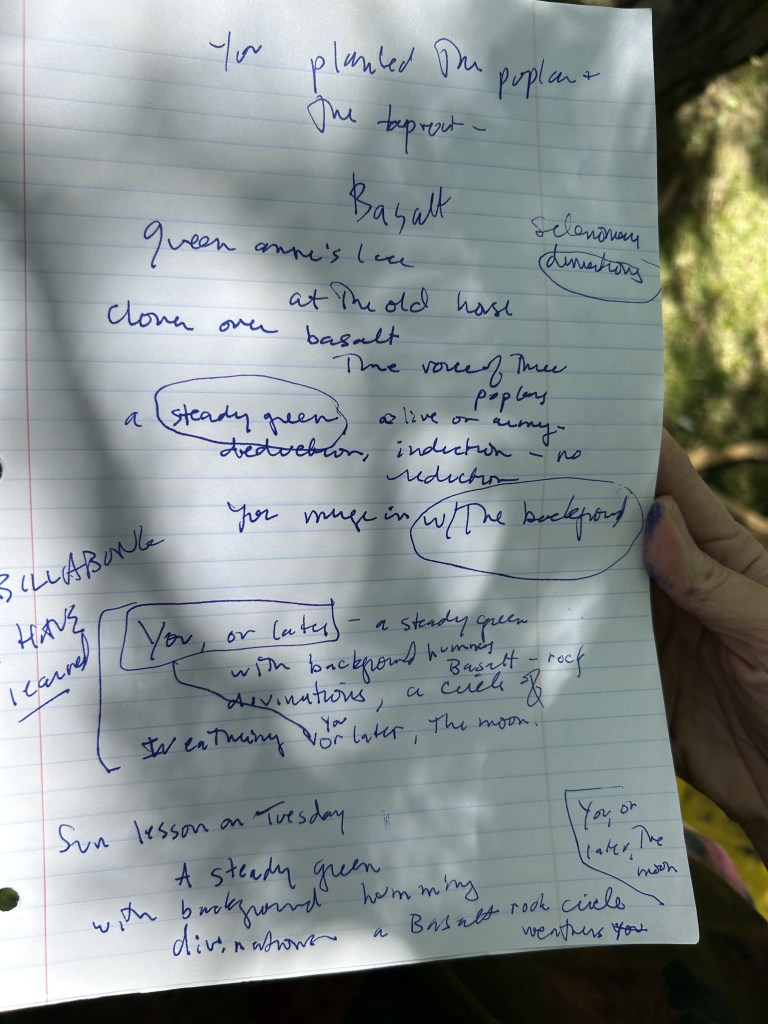 You planted The poplar +
The taproot -
Basalt
queen anne's lace
divinations
at The old house
Clover over basalt
Three poplars
a steady green alive or
deduction, induction - no
reduction
You merge in w/ The background
BILLABONG
HAVE
learned
You, or later - a steady green
with background humming
Basalt - rock
divinations, a circle of
you
or later, The moon.
Sun lesson on Tuesday
A steady green
with background humming
divinations a Basalt rock circle
weathers you
You, or
later, The
moon